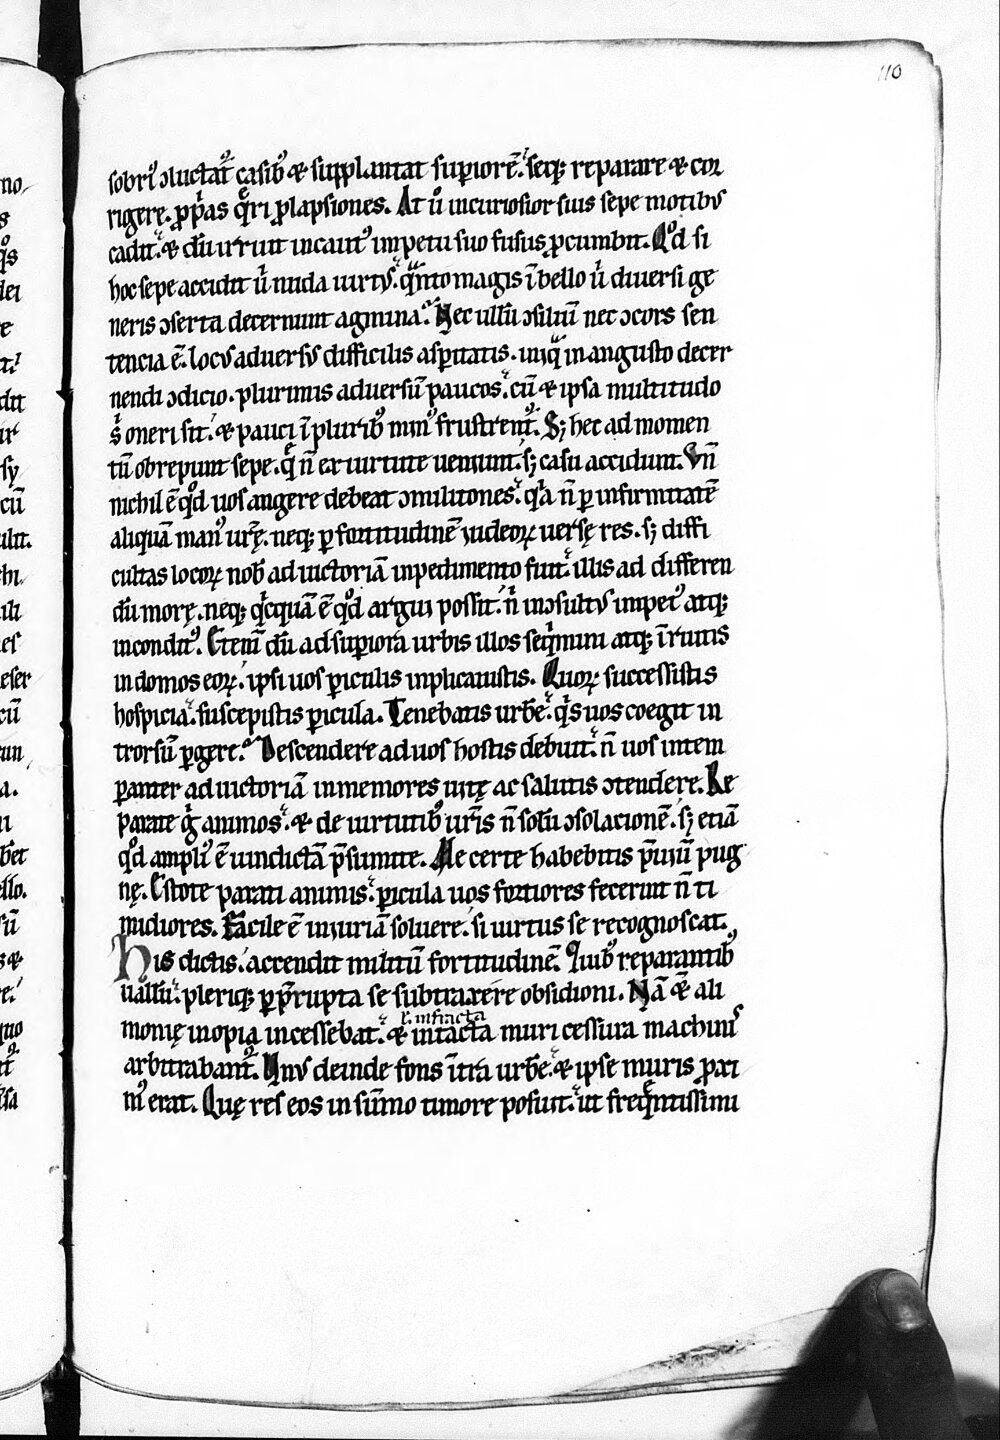 110
sobri᷒ ↄluctat᷒ casib᷒ & supplantat sup̲iorē. seq; reparare & cor
rigere. p̲p̲as q̄ri p̲lapsiones. At ů incuriosior suis sepe motibꝰ
cadit. & dū irruit incautꝰ impetu suo fusus p̲cumbit. Qͦd si
hoc sepe accidit ů nuda uirtꝰ. q̄nto magis ī bello ů diuersi ge
neris ↄserta decernunt agmina. Nec ullū ↄsiliū nec ↄcors sen
tencia ē. locꝰ aduersꝰ difficilis asp̲itatis. iniq in angusto decer
nendi ↄdicio. plurimis aduersū paucos. cū & ipsa multitudo
s oneri sit. & pauci ī pluribꝰ minꝰ frustrent᷒. Sꝫ hec ad momen
tū obrepunt sepe. q̄ n̄ ex uirtute ueniunt. sꝫ casu accidunt. Vn̄
nichil ē qͦd uos angere debeat ↄmilitones. qͣ n̄ p̲ infirmitatē
aliquā manꝰ ur̄ę. neq; p̲ fortitudinē iudeoꝝ uersę res. sꝫ diffi
cultas locoꝝ nob̄ ad uictoriā inpedimento fuit. illis ad differen
dū morę. neq; qͥcquā ē qͦd argui possit. n̄ inↄsultꝰ impetꝰ atq;
inconditꝰ. Etenī dū ad sup̲iora urbis illos seqͥmini atq; ītutis
in domos eoꝝ. ipsi uos p̲iculis inplicauistis. Quoꝝ successistis
hospicia. suscepistis p̲icula. Tenebatis urbē. qͥs uos coegit in
trorsū p̲gere. Descendere ad uos hostis debuit. n̄ uos intem
p̲anter ad uictoriā inmemores uitę ac salutis ↄtendere. Re
parate g̊ animos. & de uirtutibꝰ ur̄is n̄ solū ↄsolacionē. sꝫ etiā
qͦd ampliꝰ ē uindictā p̄sumite. Me certe habebitis p̄uiū pug
nę. Estote parati animis. p̲icula uos fortiores fecerint n̄ ti
midiores. Facile ē iniuriā soluere. si uirtus se recognoscat.
His dictis. accendit militū fortitudinē. Quibꝰ reparantibꝰ
uallū. pleriq; p̲ p̄rupta se subtraxere obsidioni. Nā & ali
monię inopia incessebat. & intacta muri cessura machinis
ł. infracta
arbitrabant᷒. Vnꝰ deinde fons ītra urbē. & ipse muris p̲xi
mꝰ erat. Quę res eos in sūmo timore posuit. ut freqͣntissimi